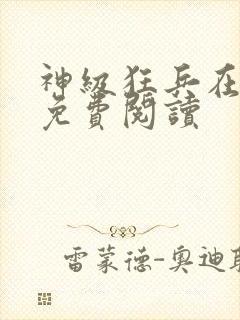 神級狂兵在
免費閱讀
雷蒙德-奧迪